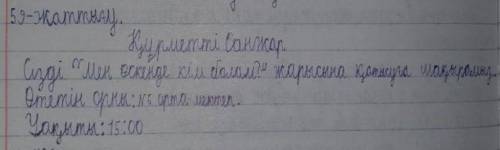 59-жаттығу.
Құрметті Санжар
Сізді "Мен өскенде кім болам?" жарысына қатысуға шақырамыз.
Өтетін орны: №5 орта мектеп.
Уақыты: 15:00